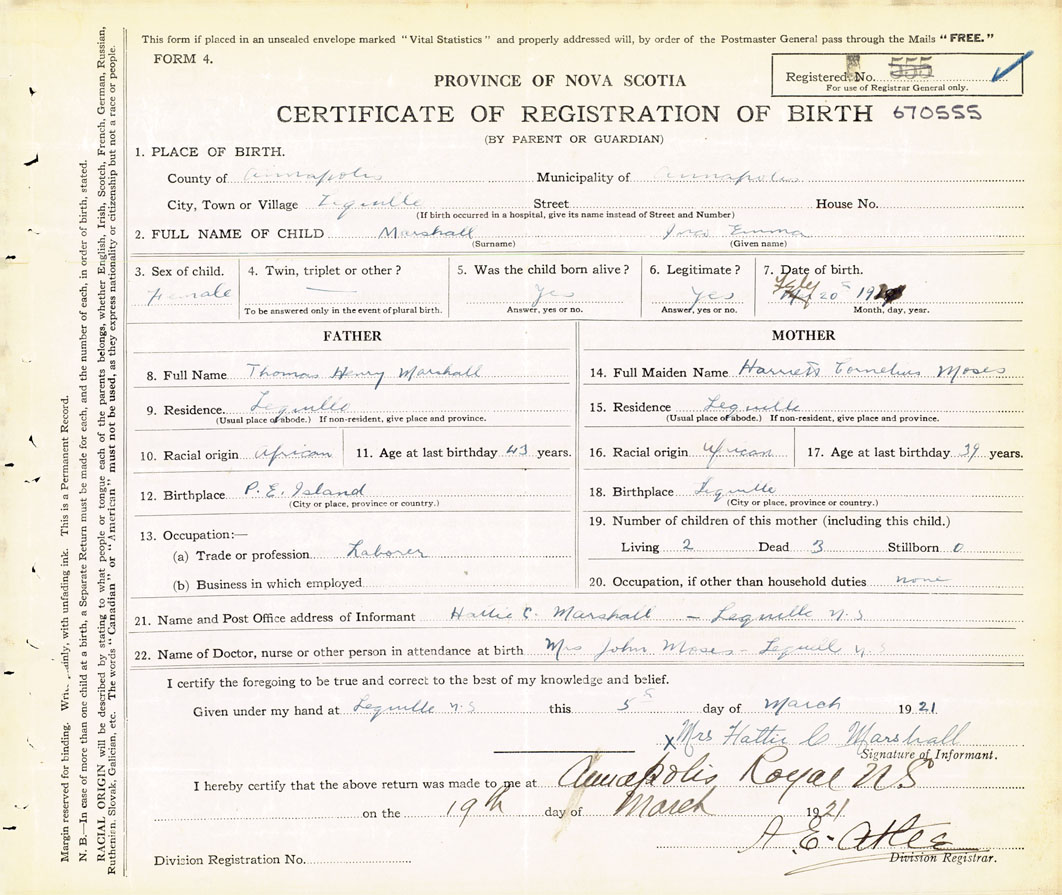 This form if placed in an unsealed envelope marked "Vital Statistics" and properly addressed will, by order of the Postmaster General pass through the Mails "FREE."
FORM 4.
Registered No. 555
For use of Registrar General only.
PROVINCE OF NOVA SCOTIA
CERTIFICATE OF REGISTRATION OF BIRTH 670555
(BY PARENT OR GUARDIAN)
1. PLACE OF BIRTH.
County of Annapolis Municipality of Annapolis
City, Town or Village Lequille Street House No.
(If birth occurred in a hospital, give its name instead of Street and Number)
2. FULL NAME OF CHILD Marshall Emma
(Surname) (Given name)
3. Sex of child. 4. Twin, triplet or other? 5. Was the child born alive? 6. Legitimate? 7. Date of birth.
Female — Yes Yes 20th 19
To be answered only in the event of plural birth. Answer, yes or no. Answer, yes or no. Month, day, year.
FATHER
8. Full Name Thomas Henry Marshall
9. Residence. Lequille
(Usual place of abode.) If non-resident, give place and province.
10. Racial origin African 11. Age at last birthday 43 years.
12. Birthplace P.E. Island
(City or place, province or country.)
13. Occupation:—
(a) Trade or profession Laborer
(b) Business in which employed
MOTHER
14. Full Maiden Name Harriett Cornelius Moses
15. Residence Lequille
(Usual place of abode.) If non-resident, give place and province.
16. Racial origin African 17. Age at last birthday 39 years.
18. Birthplace Lequille
(City or place, province or country.)
19. Number of children of this mother (including this child.)
Living 2 Dead 3 Stillborn 0
20. Occupation, if other than household duties none
21. Name and Post Office address of Informant Hattie C. Marshall – Lequille N.S
22. Name of Doctor, nurse or other person in attendance at birth Mrs John Moses – Lequille N.S
I certify the foregoing to be true and correct to the best of my knowledge and belief.
Given under my hand at Lequille N.S this 5th day of March 1921
x Mrs Hattie C Marshall
Signature of Informant.
I hereby certify that the above return was made to me at Annapolis Royal N.S
on the 19th day of March 1921
A. E. Atlee
Division Registrar.
Division Registration No.
Margin reserved for binding. Write plainly, with unfading ink. This is a Permanent Record.
N. B.—In case of more than one child at a birth, a Separate Return must be made for each, and the number of each, in order of birth, stated.
RACIAL ORIGIN will be described by stating to what people or tongue each of the parents belongs, whether English, Irish, Scotch, French, German, Russian,
Ruthenian, Slovak, Galician, etc. The words "Canadian" or "American" must not be used, as they express nationality or citizenship but not a race or people.